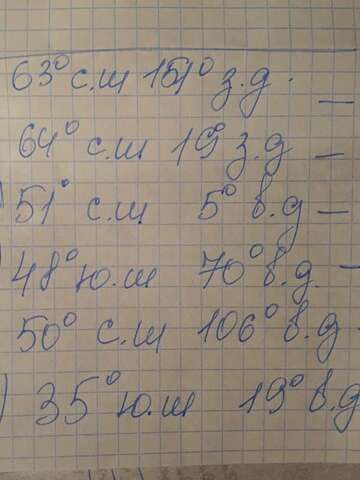 63° с.ш 151° з.д. —
64° с.ш 19° з.д —
51° с.ш. 5° в.д —
48° ю.ш 70° в.д. —
50° с.ш 106° в.д
) 35° ю.ш 19° в.д